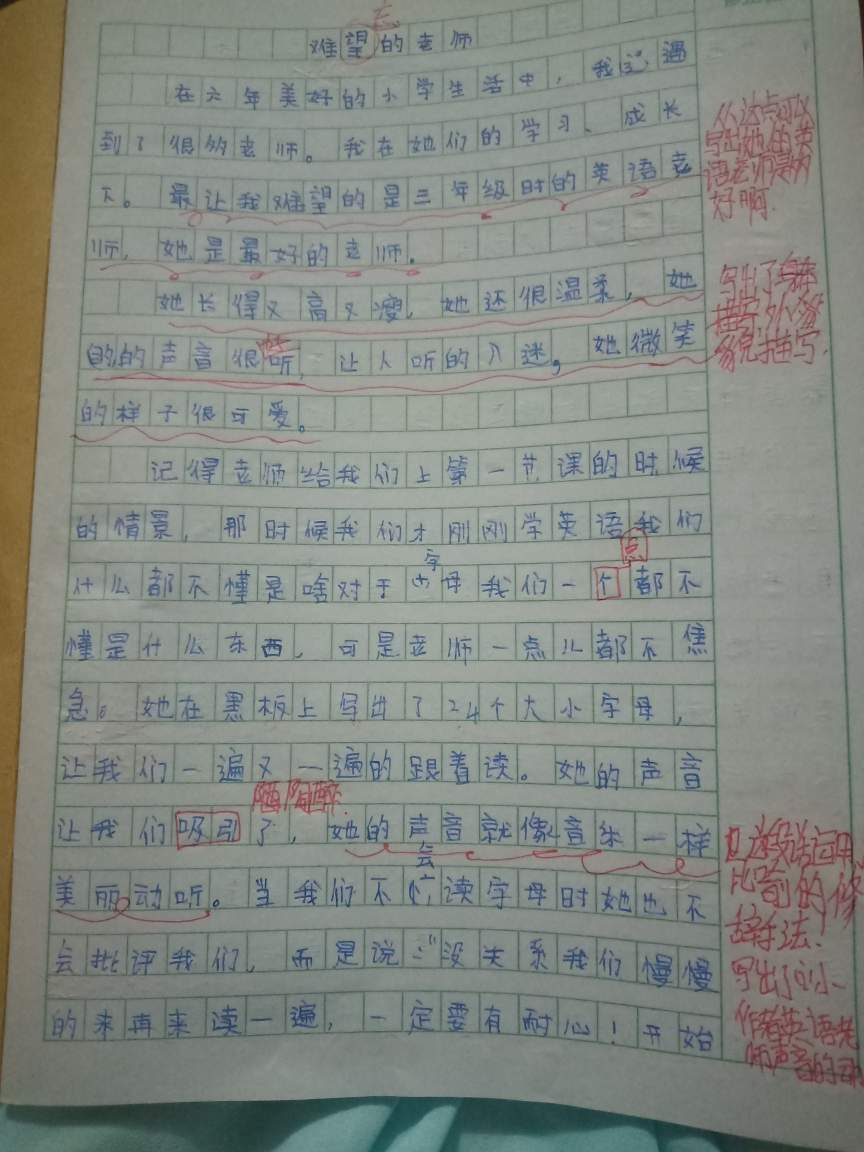 忘
难望的老师
在六年美好的小学生活中，我遇
到了很多老师。我在她们的学习、成长
下。最让我难望的是三年级时的英语老
师，她是最好的老师。
她长得又高又瘦，她还很温柔，她
的声音很好听，让人听的入迷，她微笑
的样子很可爱。
记得老师给我们上第一节课的时候
的情景，那时候我们才刚刚学英语我们
点
什么都不懂是啥对于字母我们一个都不
懂是什么东西，可是老师一点儿都不焦
急。她在黑板上写出了24个大小字母，
让我们一遍又一遍的跟着读。她的声音
陶醉
让我们吸引了，她的声音就像音乐一样
美丽动听。当我们不会读字母时她也不
会批评我们，而是说："没关系我们慢慢
的来再来读一遍，一定要有耐心！开始
从这点可以
写出她的英
语老师是多
好啊.
写出了
描写外
貌描写.
这段话运用
比喻的修
辞手法.
写出了小
作者英语老
师声音的动